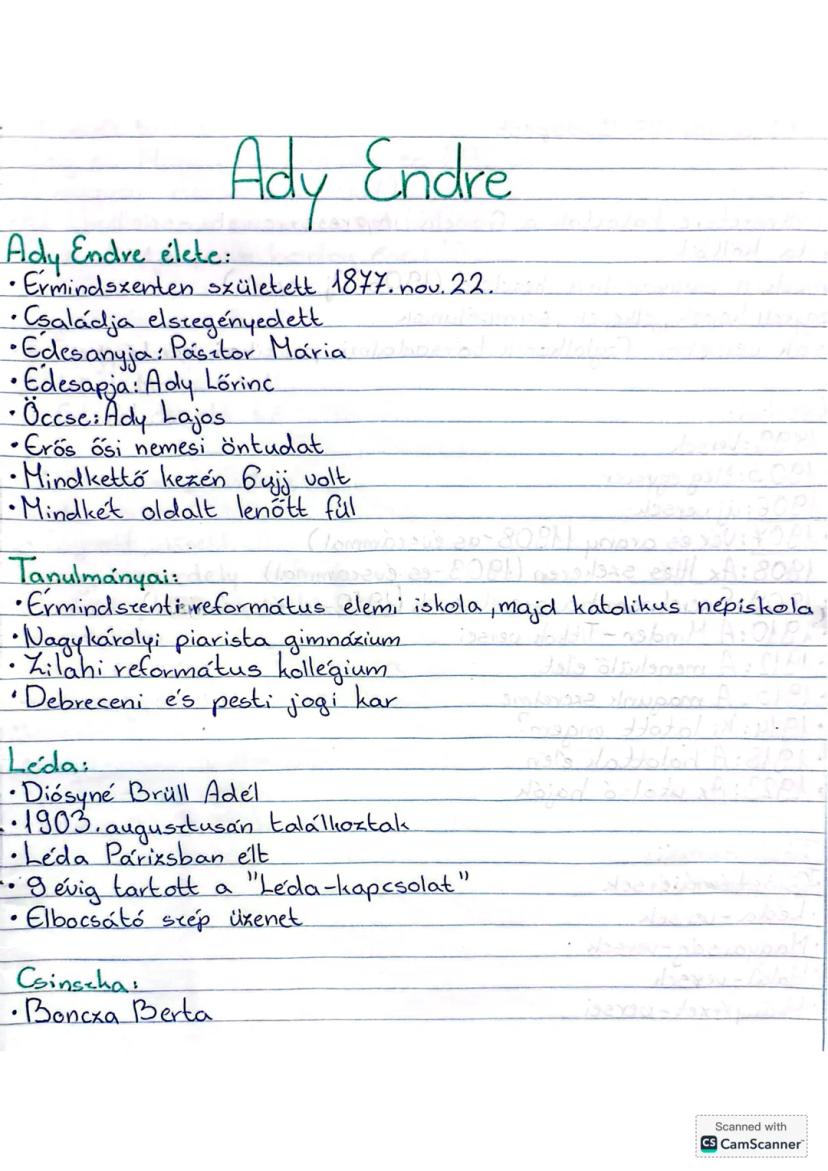 Ady Endre
Ady Endre élete:
• Érmindszenten született 1877. nov. 22.
• Családja elszegényedett
• Édesanyja: Pásztor Mária
• Édesapja: Ady Lőrinc
• Öccse: Ady Lajos
• Erős ősi nemesi öntudat
• Mindkettő kezén 6 ujj volt
• Mindkét oldalt lenőtt fül
Tanulmányai:
• Érmindszenti református elemi iskola, majd katolikus népiskola
• Nagykárolyi piarista gimnázium
• Zilahi református kollégium
• Debreceni és pesti jogi kar
Léda:
• Diósyné Brüll Adél
• 1903. augusztusán találkoztak
• Léda Párizsban élt
• 9 évig tartott a "Léda-kapcsolat"
• Elbocsátó szép üzenet
Csinszka:
• Boncza Berta
Scanned with
CS CamScanner